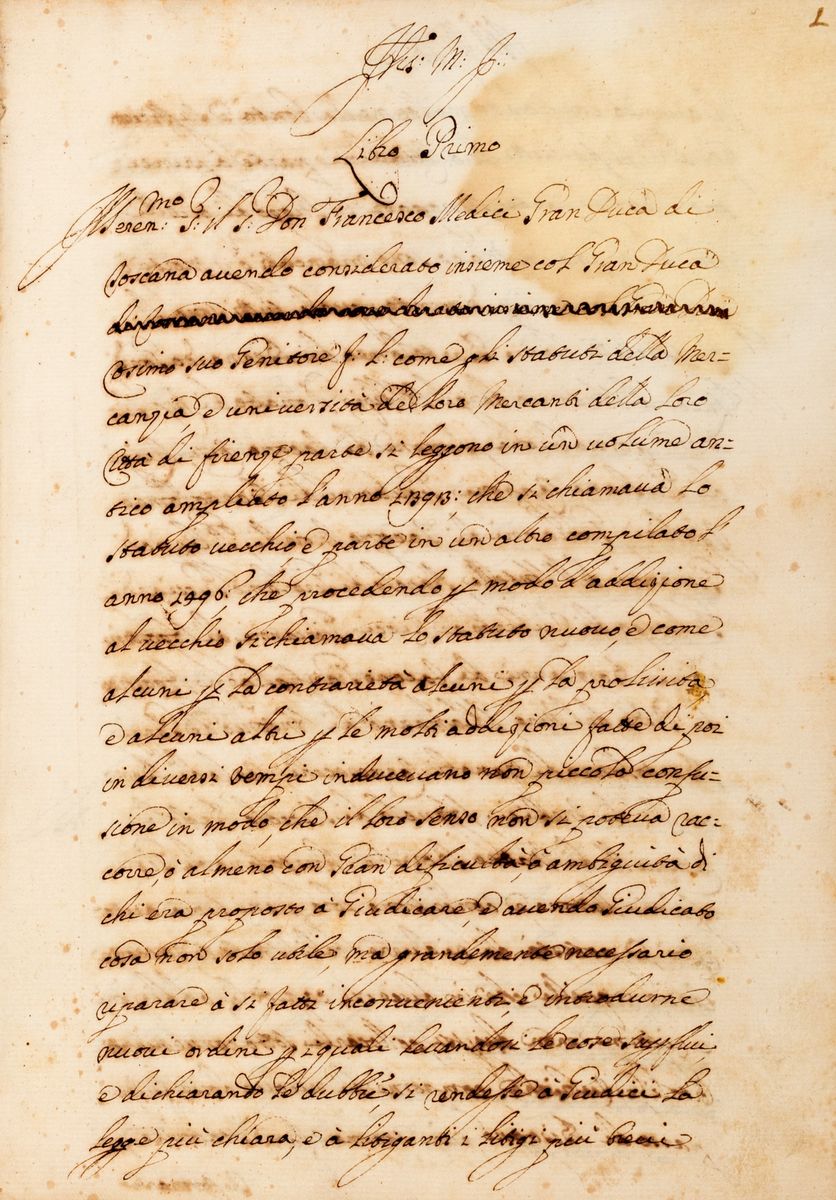 1
Jhs: M: J:
Libro Primo
Il Seren:mo S: il S: Don Francesco Medici Gran Duca di
Toscana avendo considerato insieme col Gran Duca
di Toscana avendo considerato insieme col Gran Duca
Cosimo suo Genitore f: l: come gli statuti della Mer=
canzia, e università de loro Mercanti della loro
Città di firenze parte si leggono in un volume an=
tico ampliato l'anno 1393: che si chiamava lo
statuto vecchio, e parte in un altro compilato l'
anno 1496: che procedendo p modo d'addizione
al vecchio si chiamava lo statuto nuovo, e come
alcuni p la contrarietà alcuni p la prolissità
e alcuni altri p le molti addizioni fatte di poi
in diversi tempi inducevano non piccola confu=
sione in modo, che il loro senso non si poteva rac=
corre, ò almeno con Gran dificultà ò ambiguità di
chi era proposto à Giudicare, e avendo Giudicato
cosa non solo utile, ma grandemente necessario
riparare à si fatti inconvenienti, e introdurne
nuovi ordini p i quali levandosi le cose supflui
e dichiarando le dubbie, si rendesse à Giudici la
legge più chiara, e à litiganti i litigi più brevi